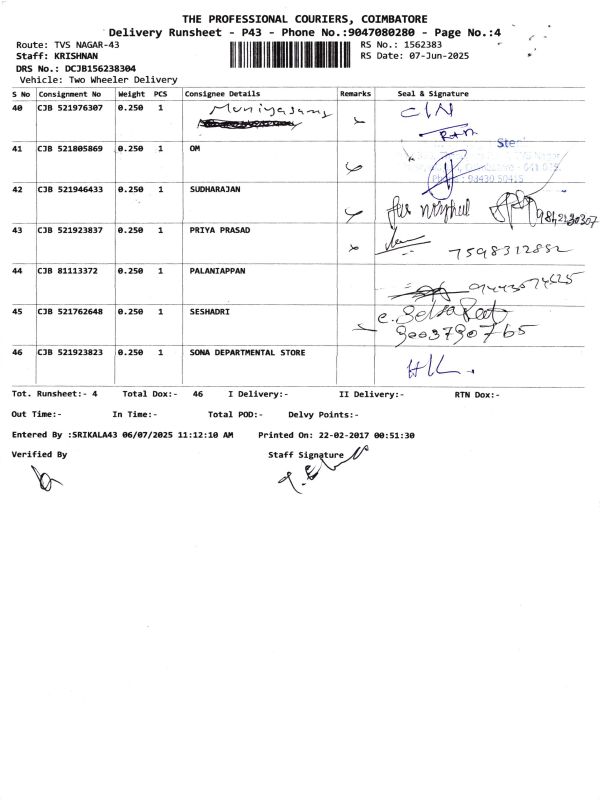 THE PROFESSIONAL COURIERS, COIMBATORE
Delivery Runsheet - P43 - Phone No.:9047080280 - Page No.:4
Route: TVS NAGAR-43 RS No.: 1562383
Staff: KRISHNAN RS Date: 07-Jun-2025
DRS No.: DCJB156238304
Vehicle: Two Wheeler Delivery
S No Consignment No Weight PCS Consignee Details Remarks Seal & Signature
40 CJB 521976307 0.250 1 Muniyasamy
41 CJB 521805869 0.250 1 OM
42 CJB 521946433 0.250 1 SUDHARAJAN
43 CJB 521923837 0.250 1 PRIYA PRASAD 7598312852
44 CJB 81113372 0.250 1 PALANIAPPAN
45 CJB 521762648 0.250 1 SESHADRI 9003790765
46 CJB 521923823 0.250 1 SONA DEPARTMENTAL STORE
Tot. Runsheet:- 4 Total Dox:- 46 I Delivery:- II Delivery:- RTN Dox:-
Out Time:- In Time:- Total POD:- Delvy Points:-
Entered By :SRIKALA43 06/07/2025 11:12:10 AM Printed On: 22-02-2017 00:51:30
Verified By Staff Signature